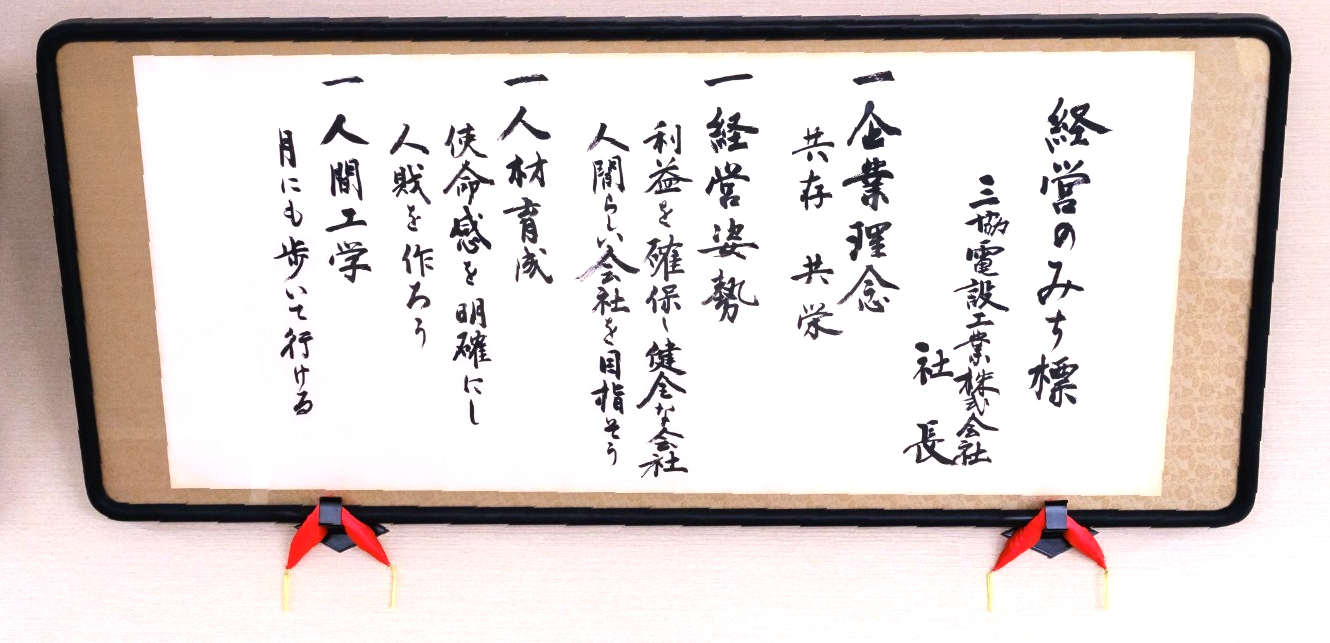 経営のみち標
三協電設工業株式会社
社長
一企業理念
共存 共栄
一経営姿勢
利益を確保し健全な会社
人間らしい会社を目指そう
一人材育成
使命感を明確にし
人財を作ろう
一人間工学
月にも歩いて行ける